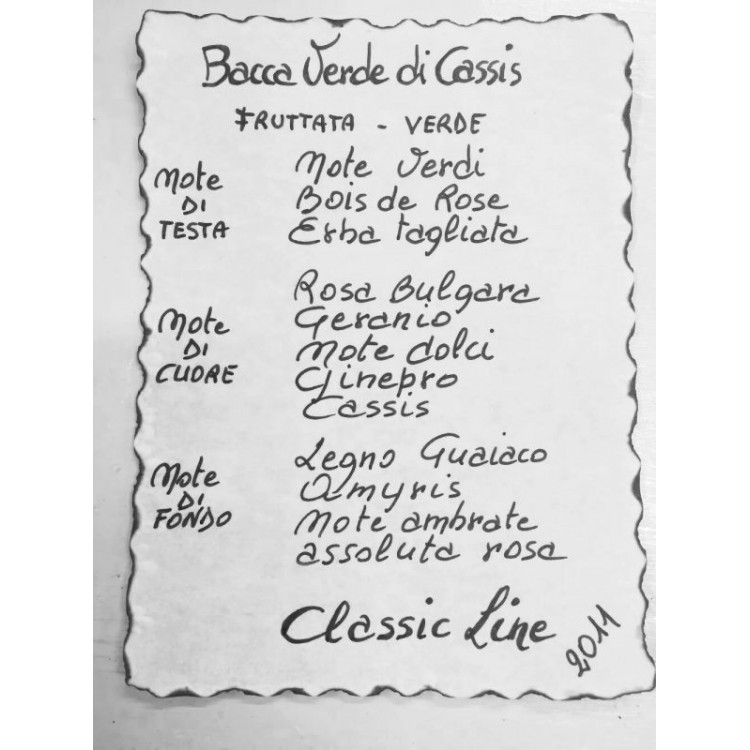 Bacca Verde di Cassis
FRUTTATA - VERDE
Note
DI
TESTA
Note Verdi
Bois de Rose
Erba tagliata
Note
DI
CUORE
Rosa Bulgara
Geranio
Note dolci
Ginepro
Cassis
Note
DI
FONDO
Legno Guaiaco
Amyris
Note ambrate
assoluta rosa
Classic Line
2011